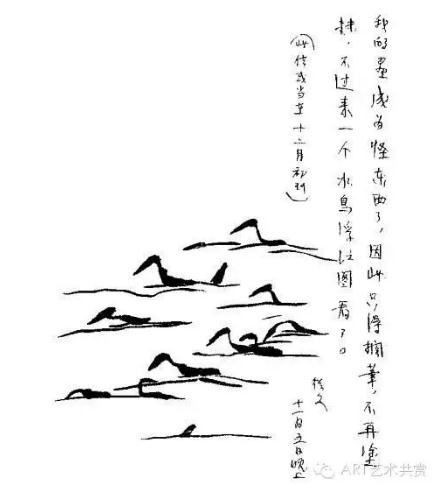 我的成为怪东西了，因此只得搁筆，不再涂
抹，不过来一个水鸟浮江图看了。
（此信或当在十二月初到）
十一月五日晚上
ART艺术共赏